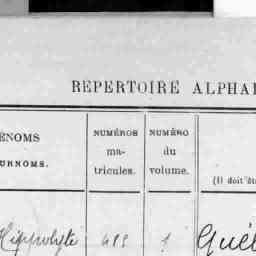 REPERTOIRE ALPHA
ÉNOMS
URNOMS.
NUMÉROS
ma-
tricules.
NUMÉRO
du
volume.
(Il doit êt
Hippolyte 1 Quél